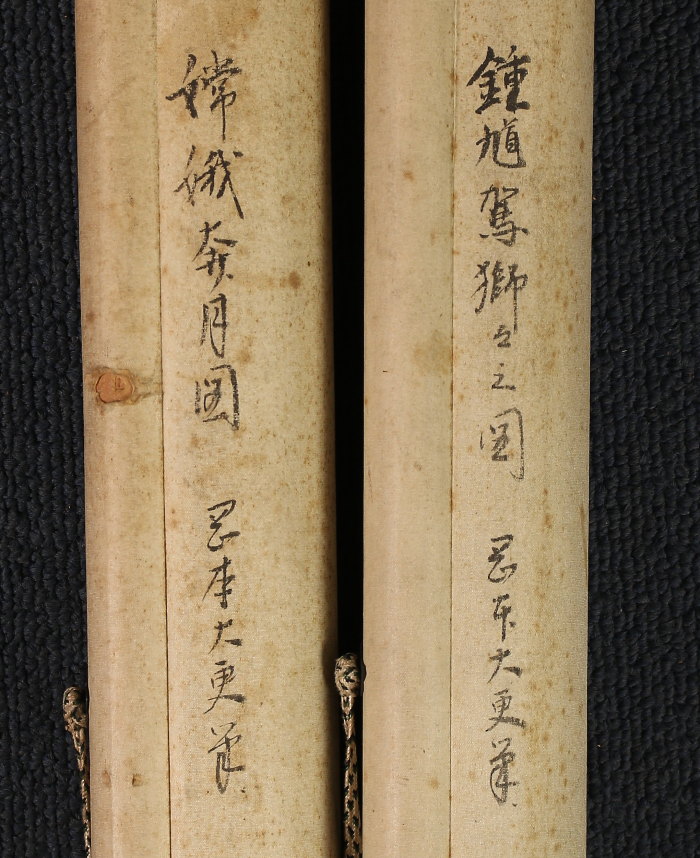 鍾馗駕獅之図 岡本大更筆
嫦娥奔月図 岡本大更筆